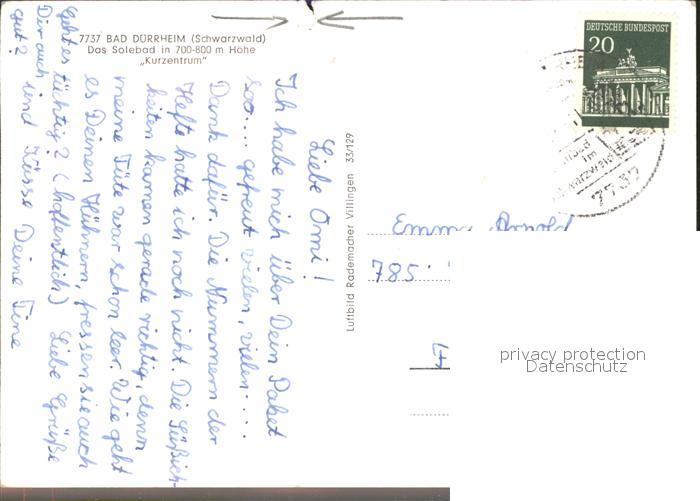 7737 BAD DÜRRHEIM (Schwarzwald)
Das Solebad in 700-800 m Höhe
„Kurzentrum"
Liebe Omi!
Ich habe mich über Dein Paket
soo... gefreut vielen, vielen....
Dank dafür. Die Nummern der
Hefte hatte ich noch nicht. Die Süßig-
keiten kamen gerade richtig, denn
meine Tüte war schon leer. Wie geht
es Deinen Hühnern, fressen sie auch
tüchtig? (hoffentlich) Liebe Grüße
und Küsse Deine Tine
Geht es
Dir auch
gut?
Luftbild Rademacher Villingen 35/129
DEUTSCHE BUNDESPOST
20
im
Schwarzwald
7737
Emma Arnold
785
privacy protection
Datenschutz